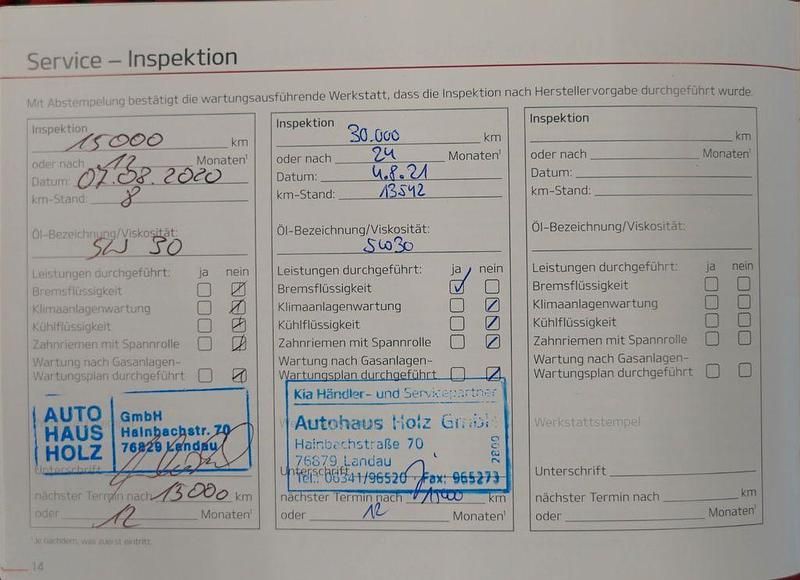 Service – Inspektion
Mit Abstempelung bestätigt die wartungsausführende Werkstatt, dass die Inspektion nach Herstellervorgabe durchgeführt wurde.
Inspektion
15000 km
oder nach 12 Monaten¹
Datum: 07.08.2020
km-Stand: 8
Öl-Bezeichnung/Viskosität:
5W 30
Leistungen durchgeführt: ja nein
Bremsflüssigkeit
Klimaanlagenwartung
Kühlflüssigkeit
Zahnriemen mit Spannrolle
Wartung nach Gasanlagen-
Wartungsplan durchgeführt
AUTO HAUS HOLZ
GmbH
Hainbachstr. 70
76829 Landau
Unterschrift
nächster Termin nach 15000 km
oder 12 Monaten¹
Inspektion
30.000 km
oder nach 24 Monaten¹
Datum: 4.8.21
km-Stand: 13542
Öl-Bezeichnung/Viskosität:
5W30
Leistungen durchgeführt: ja nein
Bremsflüssigkeit
Klimaanlagenwartung
Kühlflüssigkeit
Zahnriemen mit Spannrolle
Wartung nach Gasanlagen-
Wartungsplan durchgeführt
Kia Händler- und Servicepartner
Autohaus Holz GmbH
Hainbachstraße 70
76879 Landau
Tel.: 06341/96520 Fax: 965273
Unterschrift
nächster Termin nach km
oder 12 Monaten¹
Inspektion
km
oder nach Monaten¹
Datum:
km-Stand:
Öl-Bezeichnung/Viskosität:
Leistungen durchgeführt: ja nein
Bremsflüssigkeit
Klimaanlagenwartung
Kühlflüssigkeit
Zahnriemen mit Spannrolle
Wartung nach Gasanlagen-
Wartungsplan durchgeführt
Werkstattstempel
Unterschrift
nächster Termin nach km
oder Monaten¹
¹Je nachdem, was zuerst eintritt.
14